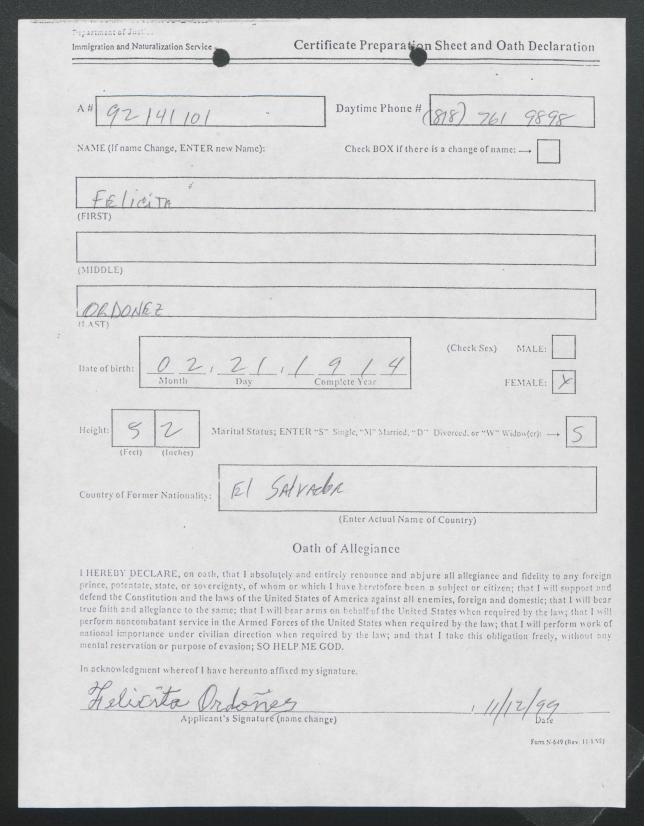 Department of Justice
Immigration and Naturalization Service
Certificate Preparation Sheet and Oath Declaration
A# 92 141 101
Daytime Phone # (818) 761 9898
NAME (If name Change, ENTER new Name):
Check BOX if there is a change of name: →
FELICITA
(FIRST)
(MIDDLE)
ORDONEZ
(LAST)
Date of birth: 02, 21, 1914
Month Day Complete Year
(Check Sex) MALE:
FEMALE: X
Height: 5 2
(Feet) (Inches)
Marital Status; ENTER "S" Single, "M" Married, "D" Divorced, or "W" Widow(er): → S
Country of Former Nationality: El SALVADOR
(Enter Actual Name of Country)
Oath of Allegiance
I HEREBY DECLARE, on oath, that I absolutely and entirely renounce and abjure all allegiance and fidelity to any foreign
prince, potentate, state, or sovereignty, of whom or which I have heretofore been a subject or citizen; that I will support and
defend the Constitution and the laws of the United States of America against all enemies, foreign and domestic; that I will bear
true faith and allegiance to the same; that I will bear arms on behalf of the United States when required by the law; that I will
perform noncombatant service in the Armed Forces of the United States when required by the law; that I will perform work of
national importance under civilian direction when required by the law; and that I take this obligation freely, without any
mental reservation or purpose of evasion; SO HELP ME GOD.
In acknowledgment whereof I have hereunto affixed my signature.
Felicita Ordoñes
11/12/99
Applicant's Signature (name change)
Date
Form N-649 (Rev.